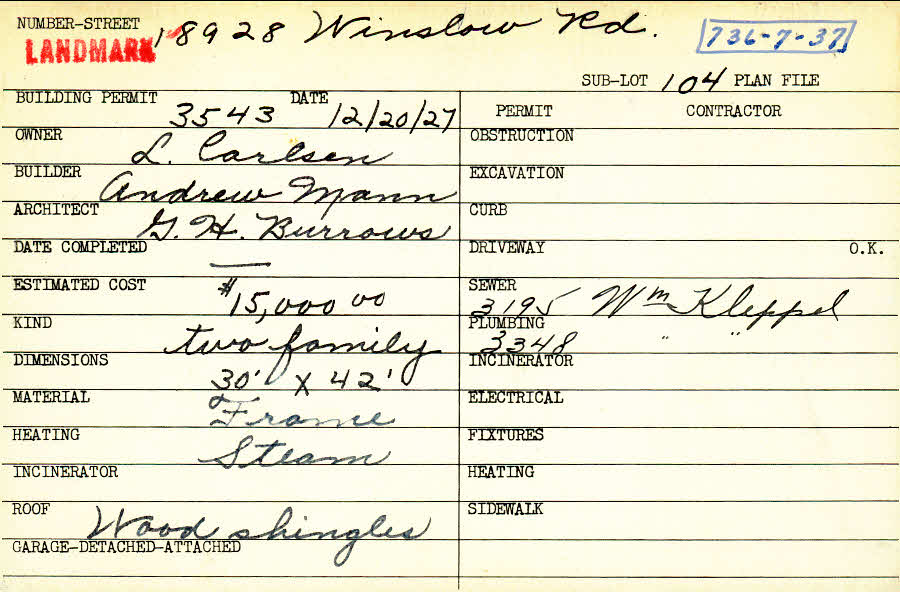 NUMBER-STREET 18928 Winslow Rd. 736-7-37
LANDMARK
SUB-LOT 104 PLAN FILE
BUILDING PERMIT 3543 DATE 12/20/27
PERMIT CONTRACTOR
OWNER L. Carlsen
OBSTRUCTION
BUILDER Andrew Mann
EXCAVATION
ARCHITECT G. H. Burrows
CURB
DATE COMPLETED —
DRIVEWAY O.K.
ESTIMATED COST $15,000 00
SEWER 3195 Wm Kleppel
KIND two family
PLUMBING 3348 " "
DIMENSIONS 30' X 42'
INCINERATOR
MATERIAL Frame
ELECTRICAL
HEATING Steam
FIXTURES
INCINERATOR
HEATING
ROOF Wood shingles
SIDEWALK
GARAGE-DETACHED-ATTACHED